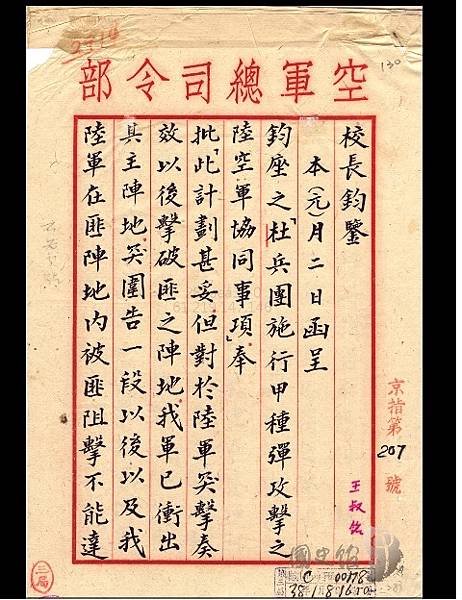 空軍總司令部
校長鈞鑒
本(元)月二日函呈
鈞座之「杜兵團施行甲種彈攻擊之
陸空軍協同事項」奉
批「此計劃甚妥但對於陸軍突擊奏
效以後擊破匪之陣地我軍已衝出
其主陣地突圍告一段以後以及我
陸軍在匪陣地內被匪阻擊不能達
京指第207號
王叔銘
130
三局
C 00178
38